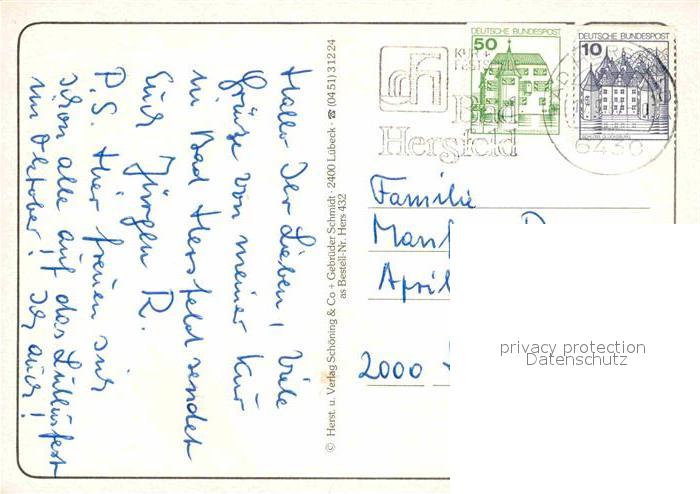 Hallo Ihr Lieben, Viele
Grüße von meiner Kur
in Bad Hersfeld sendet
Euch Jürgen R.
P.S. Hier freuen sich
schon alle auf das Lullusfest
im Oktober! Ich auch!
© Herst. u. Verlag Schöning & Co + Gebrüder Schmidt · 2400 Lübeck · ☎ (0451) 31224
as Bestell-Nr. Hers 432
DEUTSCHE BUNDESPOST
50
DEUTSCHE BUNDESPOST
10
KUR +
Bad
Hersfeld
6430
Familie
April
2000
privacy protection
Datenschutz